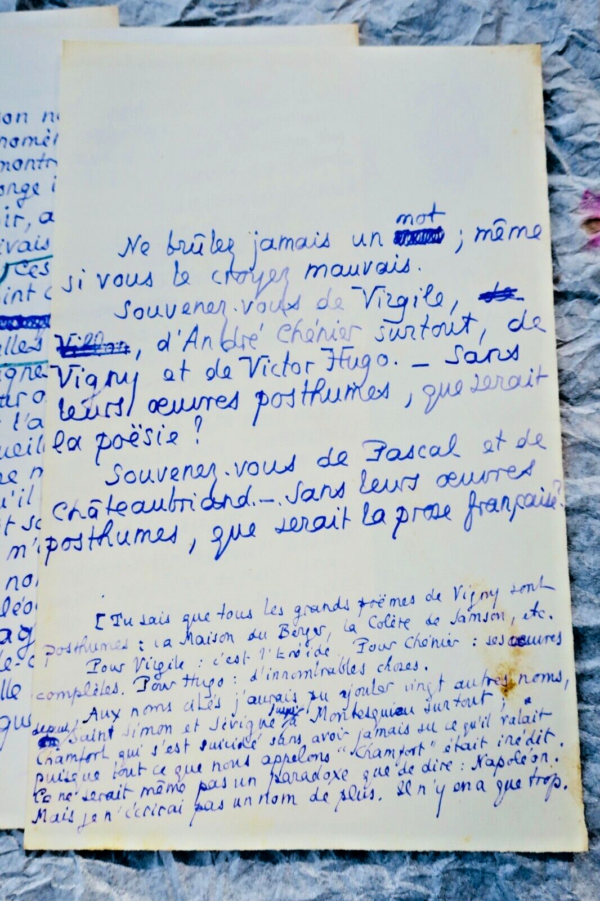 Ne brûlez jamais un mot ; même
si vous le croyez mauvais.
Souvenez-vous de Virgile, de
Villon, d'André Chénier surtout, de
Vigny et de Victor Hugo. — Sans
leurs œuvres posthumes, que serait
la poësie ?
Souvenez-vous de Pascal et de
Châteaubriand. — Sans leurs œuvres
posthumes, que serait la prose française ?
[Tu sais que tous les grands poëmes de Vigny sont
posthumes : La Maison du Berger, la Colère de Samson, etc.
Pour Virgile : c'est l'Enéide. Pour Chénier : ses œuvres
complètes. Pour Hugo : d'innombrables choses.
Aux noms cités j'aurais pu ajouter vingt autres noms,
depuis Saint Simon et Sévigné jusqu'à Montesquieu surtout !
Chamfort qui s'est suicidé sans avoir jamais su ce qu'il valait
puisque tout ce que nous appelons "Chamfort" était inédit.
Ce ne serait même pas un paradoxe que de dire : Napoléon.
Mais je n'écrirai pas un nom de plus. Il n'y en a que trop.